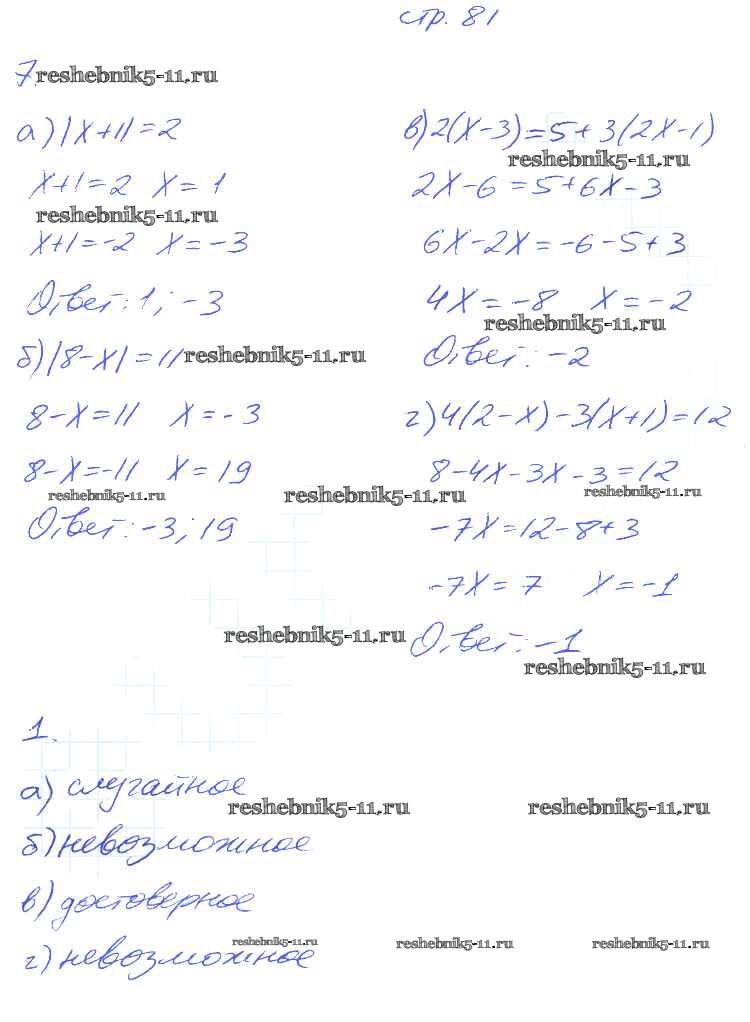 стр. 81
7. reshebnik5-11.ru
а) |x+1|=2
x+1=2 x=1
reshebnik5-11.ru
x+1=-2 x=-3
Ответ: 1; -3
б) |8-x|=11 reshebnik5-11.ru
8-x=11 x=-3
8-x=-11 x=19
reshebnik5-11.ru
Ответ: -3; 19
в) 2(x-3)=5+3(2x-1)
reshebnik5-11.ru
2x-6=5+6x-3
6x-2x=-6-5+3
4x=-8 x=-2
reshebnik5-11.ru
Ответ: -2
г) 4(2-x)-3(x+1)=12
8-4x-3x-3=12
reshebnik5-11.ru reshebnik5-11.ru
-7x=12-8+3
-7x=7 x=-1
reshebnik5-11.ru
Ответ: -1
reshebnik5-11.ru
1.
а) случайное
reshebnik5-11.ru reshebnik5-11.ru
б) невозможное
в) достоверное
reshebnik5-11.ru reshebnik5-11.ru reshebnik5-11.ru
г) невозможное